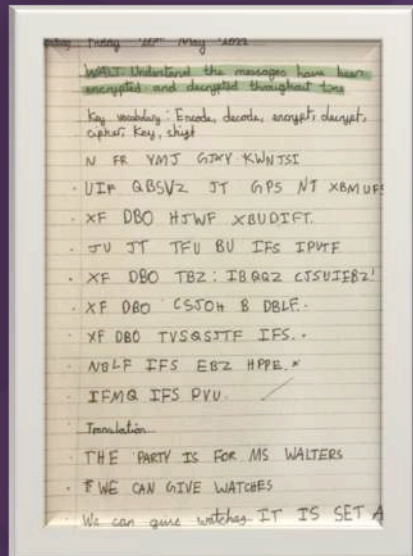 Friday 20th May 2022
WALT: Understand the messages have been
encrypted and decrypted throughout time
Key vocabulary: Encode, decode, encrypt, decrypt,
cipher, key, shift
N FR YMJ GJXY KWNJSI
· UIF QBSVZ JT GPS NT XBMUFS
· XF DBO HJWF XBUDIFT.
· JU JT TFU BU IFS IPVTF
· XF DBO TBZ: IBQQZ CJSUIEBZ!
· XF DBO CSJOH B DBLF.
· XF DBO TVSQSJTF IFS.
· NBLF IFS EBZ HPPE.
· IFMQ IFS PVU.
Translation
· THE PARTY IS FOR MS WALTERS
· WE CAN GIVE WATCHES
· We can give watches IT IS SET A